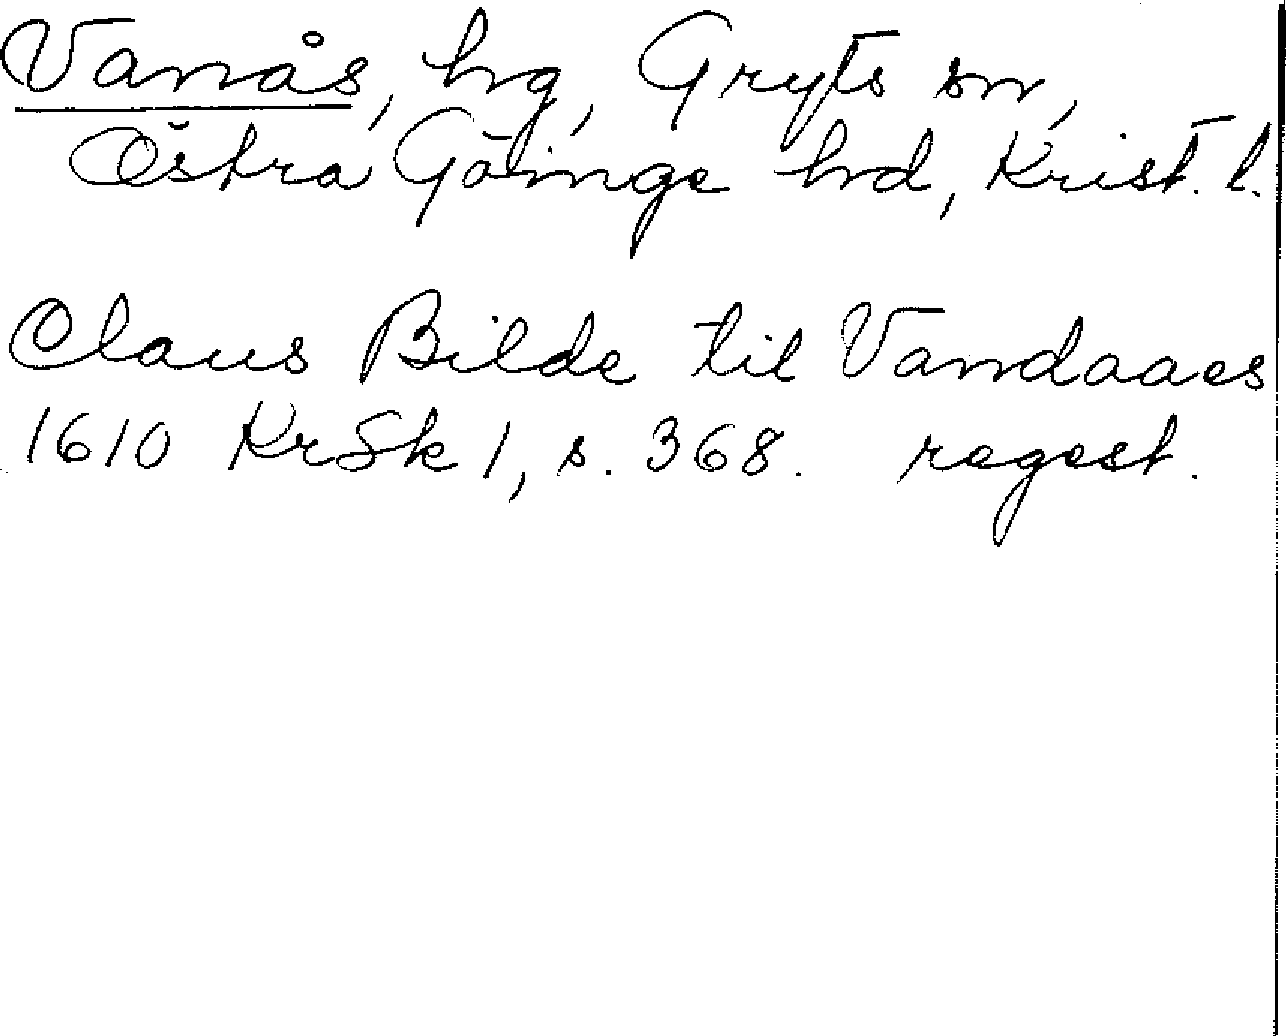 Vanås, hg, Gryts sn,
Östra Göinge hd, Krist. l.
Claus Bilde til Vandaaes
1610 KrSk 1, s. 368. regest.